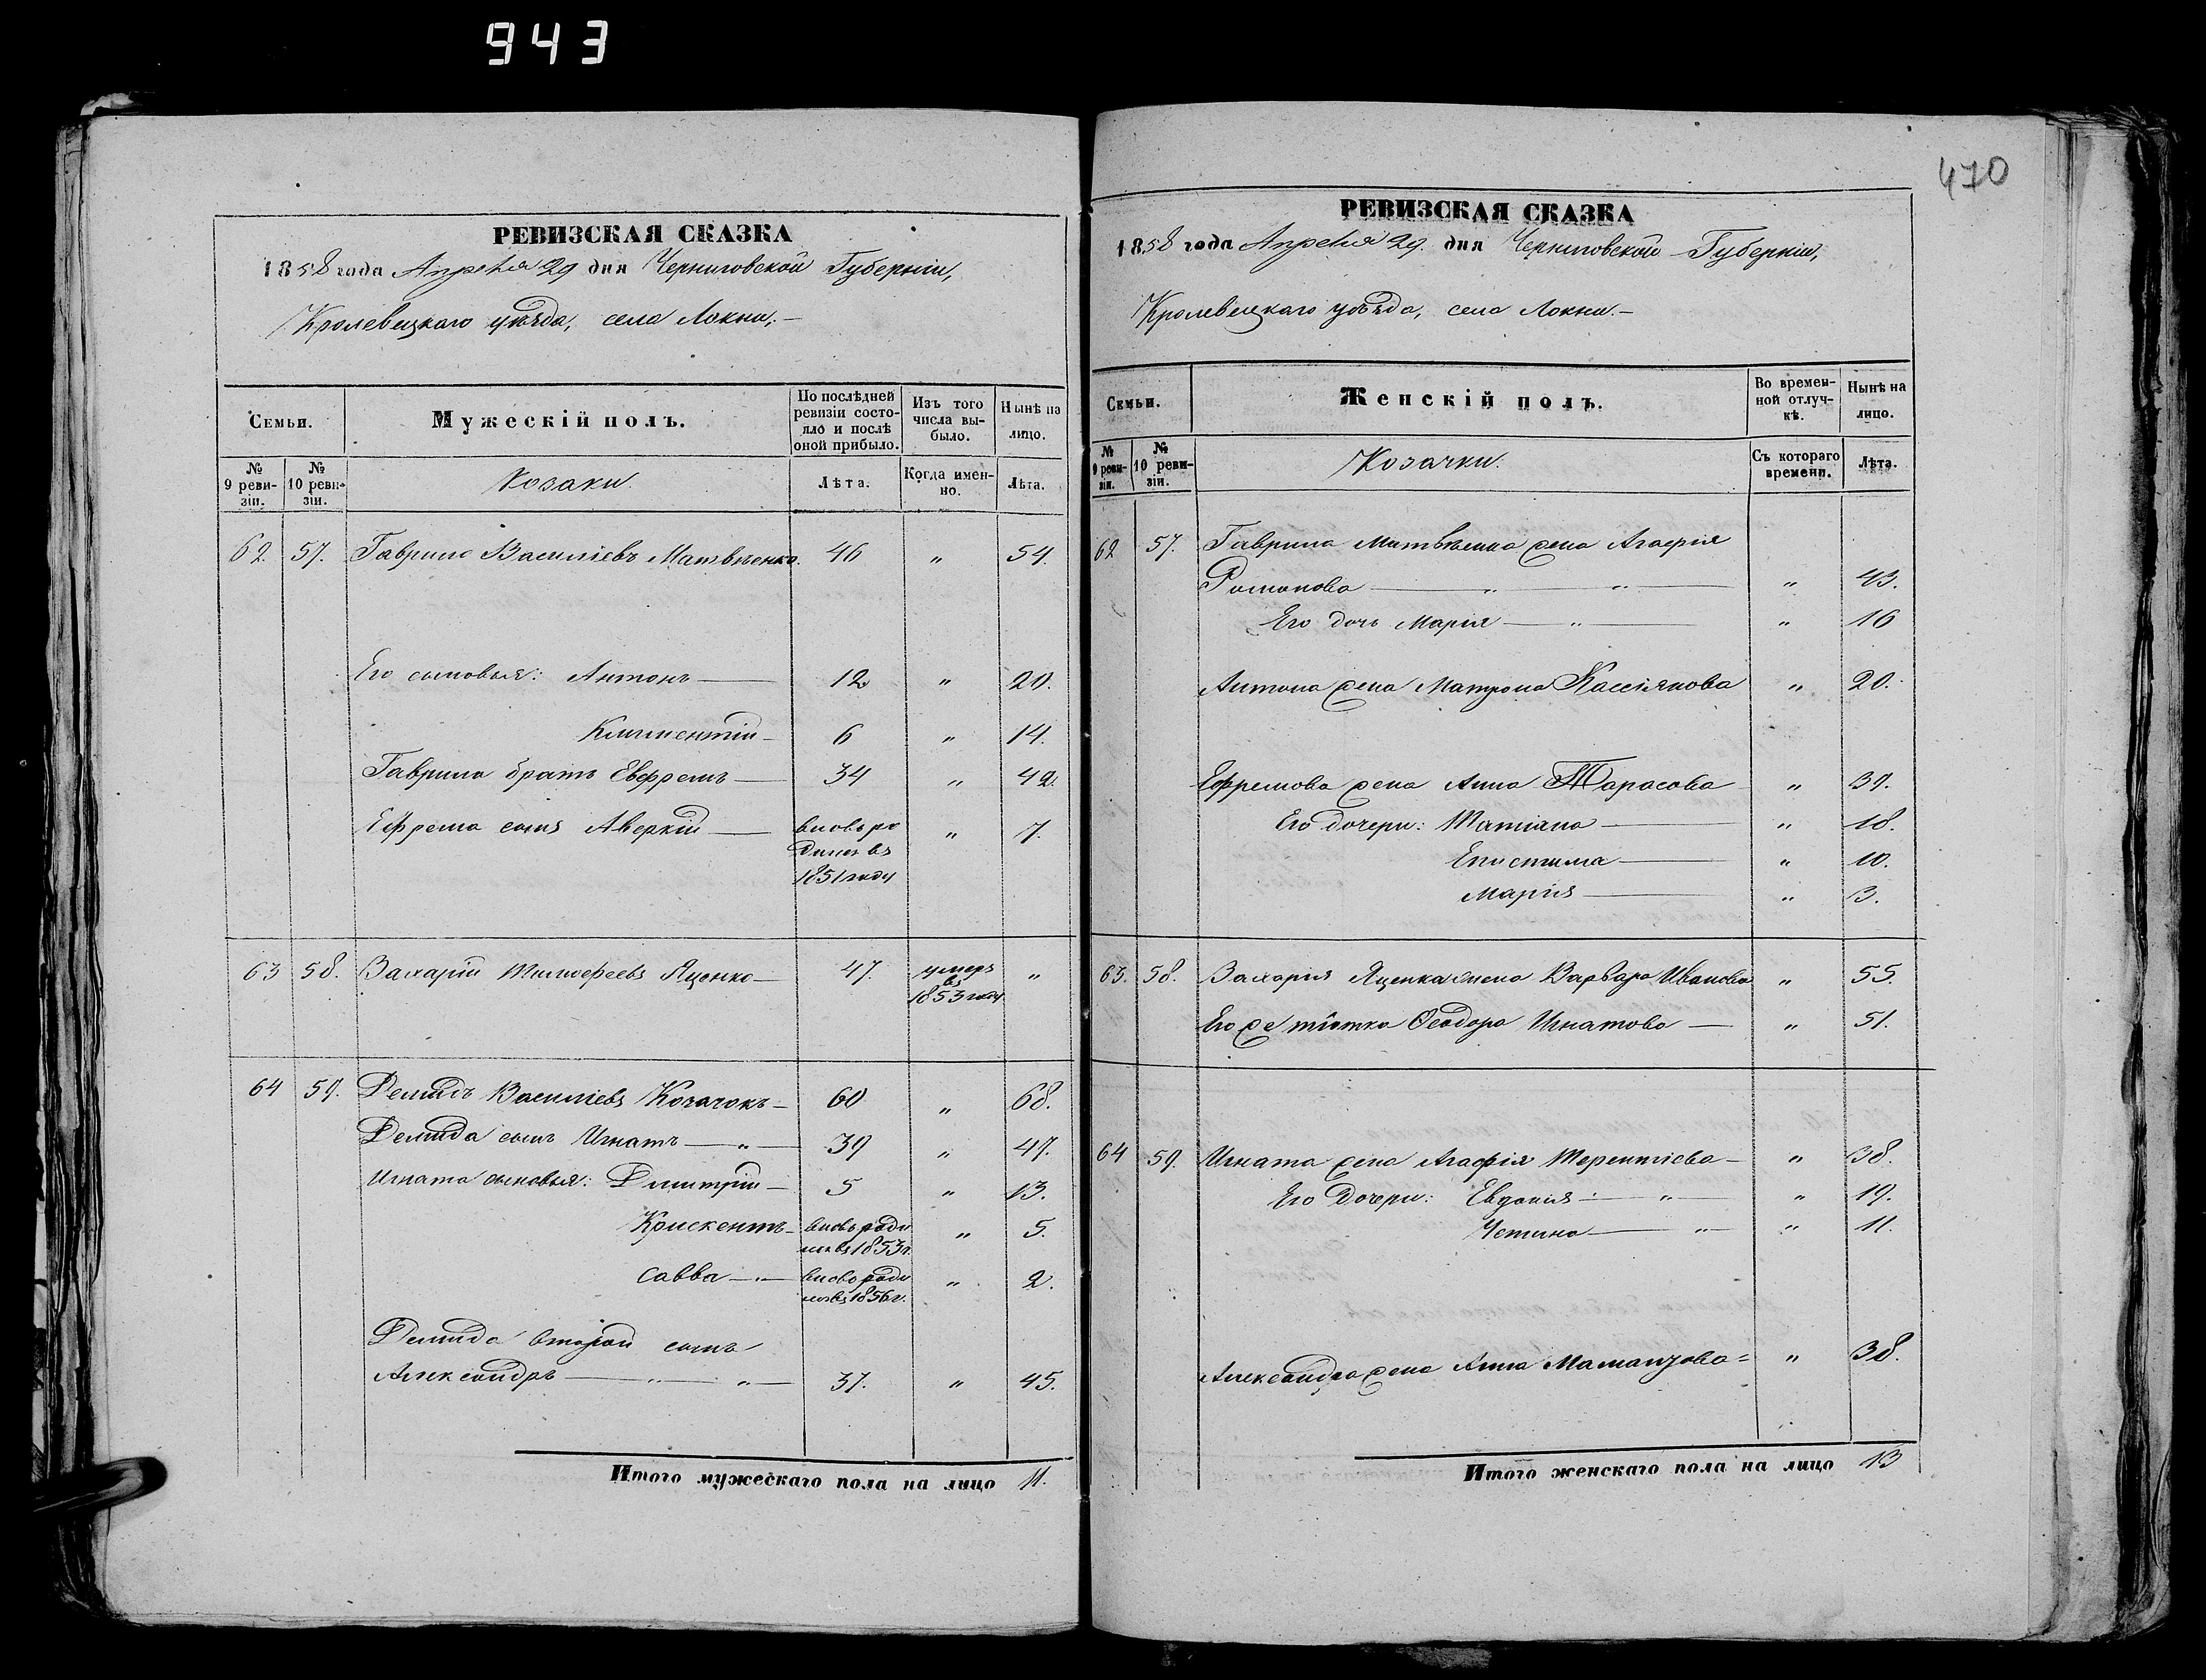 943
470
РЕВИЗСКАЯ СКАЗКА
1858 года Апреля 29 дня Черниговской Губерніи,
Кролевецкаго уѣзда, села Локни.–
Семьи.
Мужескій полъ.
По послѣдней ревизіи состояло и послѣ оной прибыло.
Изъ того числа выбыло.
Нынѣ на лицо.
№ 9 ревизіи.
№ 10 ревизіи.
Козаки.
Лѣта.
Когда именно.
Лѣта.
62. 57. Гаврило Василіевъ Матвѣенко. 46 " 54.
Его сыновья: Антонъ — 12 " 20.
Климентій – 6 " 14.
Гаврила братъ Евфремъ — 34 " 42.
Ефрема сынъ Аверкій — вновь ро " 7.
дился въ
1851 году
63 58. Захарій Тимофеевъ Яценко — 47. умеръ "
въ
1853 году
64 59. Демидъ Василіевъ Козачокъ – 60 " 68.
Демида сынъ Игнатъ — " — 39 " 47.
Игната сыновья: Димитрій – 5 " 13.
Крискентъ – вновь роди " 5.
лся въ 1853 г.
Савва — " — вновь роди " 2.
лся въ 1856 г.
Демида второй сынъ
Александръ — " — " — 37. " 45.
Итого мужескаго пола на лицо 11.
РЕВИЗСКАЯ СКАЗКА
1858 года Апреля 29. дня Черниговской Губерніи,
Кролевецкаго уѣзда, села Локни.–
Семьи.
Женскій полъ.
Во временной отлучкѣ.
Нынѣ на лицо.
№ 9 ревизіи.
№ 10 ревизіи.
Козачки.
Съ котораго времени.
Лѣта.
62 57. Гаврила Матвѣенка жена Агафія
Романова — " — " — " 43.
Его дочь Марія — " — " 16
Антона жена Матрона Кассіянова " 20.
Ефремова жена Анна Тарасова " 39.
Его дочери: Татіана — " 18.
Епистима — " 10.
Марія — " 3.
63. 58. Захарія Яценка жена Варвара Иванова " 55.
Его же тётка Феодора Игнатова — " 51.
64 59. Игната жена Агафія Терентіева – " 38.
Его дочери: Евдокія — " — " 19.
Устина — " — " 11.
Александра жена Анна " 38.
Итого женскаго пола на лицо 13